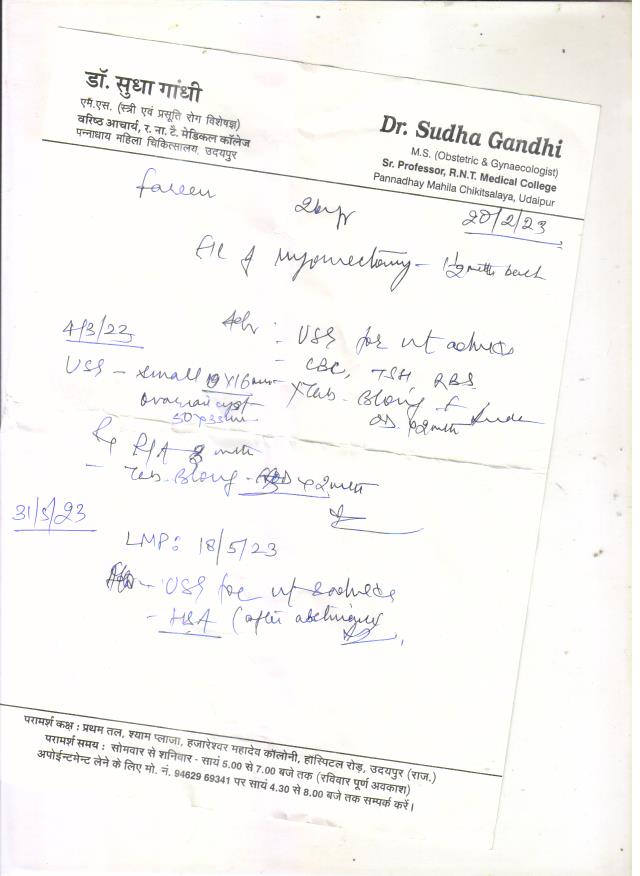 डॉ. सुधा गांधी
एम.एस. (स्त्री एवं प्रसूति रोग विशेषज्ञ)
वरिष्ठ आचार्य, र. ना. टै. मेडिकल कॉलेज
पन्नाधाय महिला चिकित्सालय, उदयपुर
Dr. Sudha Gandhi
M.S. (Obstetric & Gynaecologist)
Sr. Professor, R.N.T. Medical College
Pannadhay Mahila Chikitsalaya, Udaipur
20/2/23
myomectomy - 1½ mnth back
Adv : USG for ut adnexa
- CBC, TSH RBS
Tab.
x2mnth
4/3/23
USG - small 19x16mm
ovarian cyst
R/A mnth
- Tab. x2mnth
31/5/23
LMP: 18/5/23
- USG for ut & adnexa
- (after
परामर्श कक्ष : प्रथम तल, श्याम प्लाजा, हजारेश्वर महादेव कॉलोनी, हॉस्पिटल रोड़, उदयपुर (राज.)
परामर्श समय : सोमवार से शनिवार - सायं 5.00 से 7.00 बजे तक (रविवार पूर्ण अवकाश)
अपोईन्टमेन्ट लेने के लिए मो. नं. 94629 69341 पर सायं 4.30 से 8.00 बजे तक सम्पर्क करें।